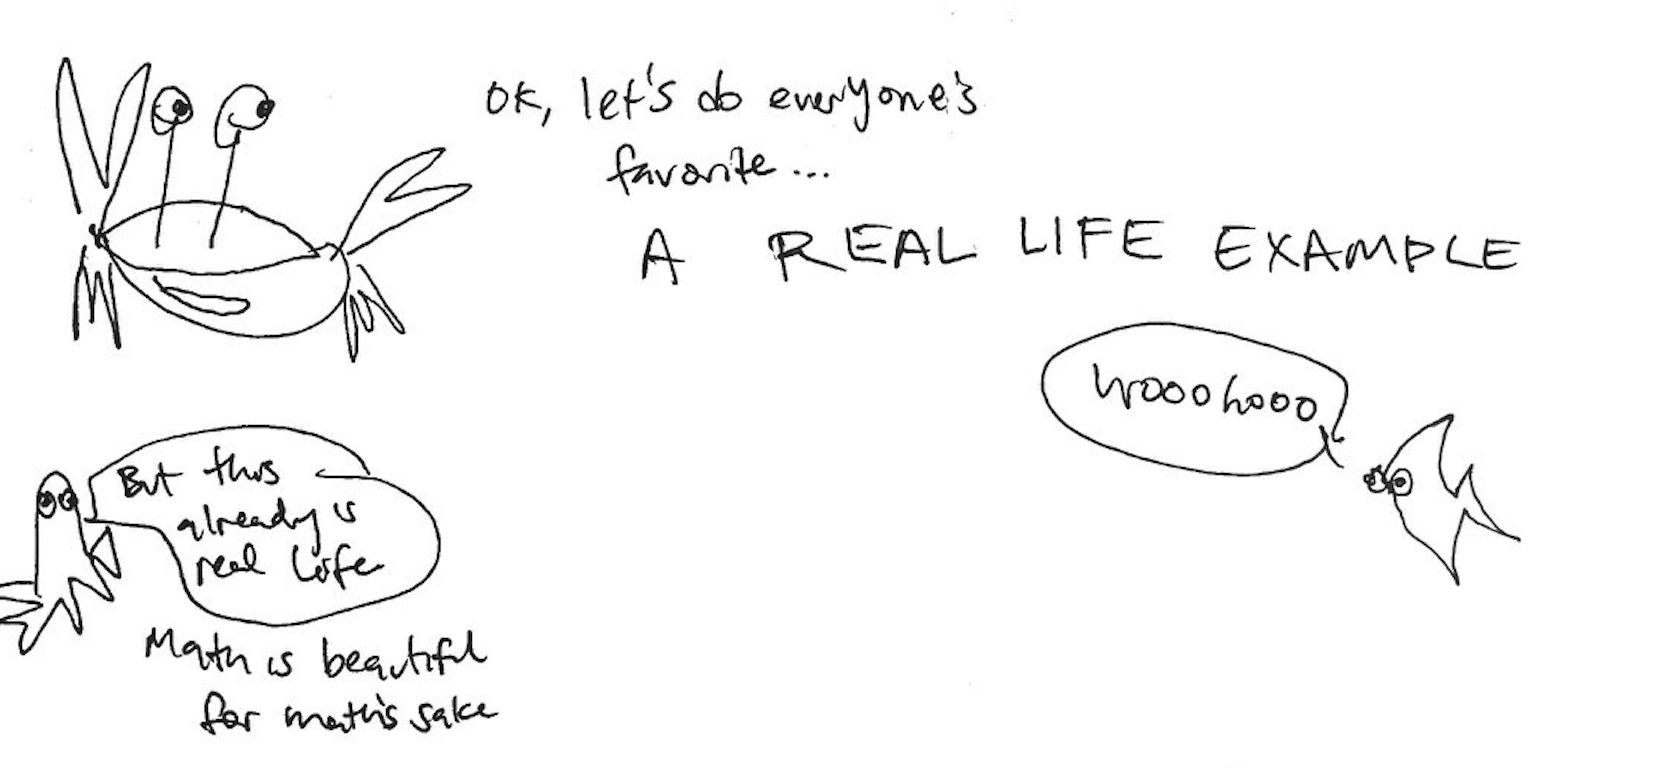 OK, let's do everyone's
favorite...
A REAL LIFE EXAMPLE
Wooohooo
But this
already is
real life
Math is beautiful
for math's sake